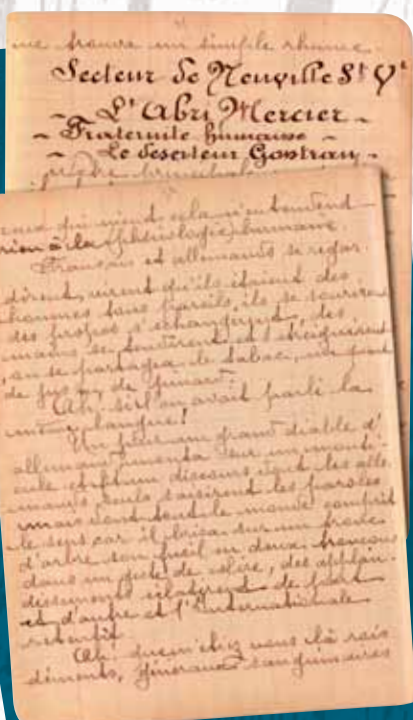 me trouva un simple rhume.
Secteur de Neuville St Vt
~ L'Abri Mercier ~
~ Fraternité humaine ~
~ Le déserteur Gontran ~
ceux qui nient cela n'entendent
rien à la (phsiologie) humaine.
Français et allemands se regar-
dèrent, virent qu'ils étaient des
hommes tous pareils, ils se sourirent
des propos s'échangèrent, des
mains se tendirent et s'étreignirent
, on se partagea le tabac, un quart
de jus ou de pinard.
Ah! si l'on avait parlé la
même langue!
Un jour un grand diable d'
allemand monta sur un monti-
cule et fit un discours dont les alle-
mands seuls saisirent les paroles
mais dont tout le monde comprit
le sens car il brisa sur un tronc
d'arbre son fusil en deux tronçons
dans un geste de colère, des applau-
dissements éclatèrent de part
et d'autre et l'Internationale
retentit.
Ah! que n'étiez vous là rois
déments, généraux sanguinaires